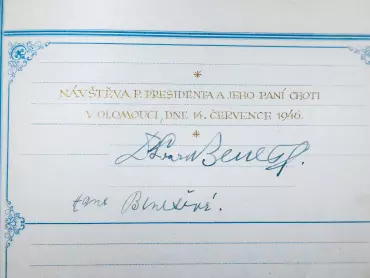 NÁVŠTĚVA P. PRESIDENTA A JEHO PANÍ CHOTI
V OLOMOUCI, DNE 14. ČERVENCE 1946.
Dr Edvard Beneš.
Hana Benešová.